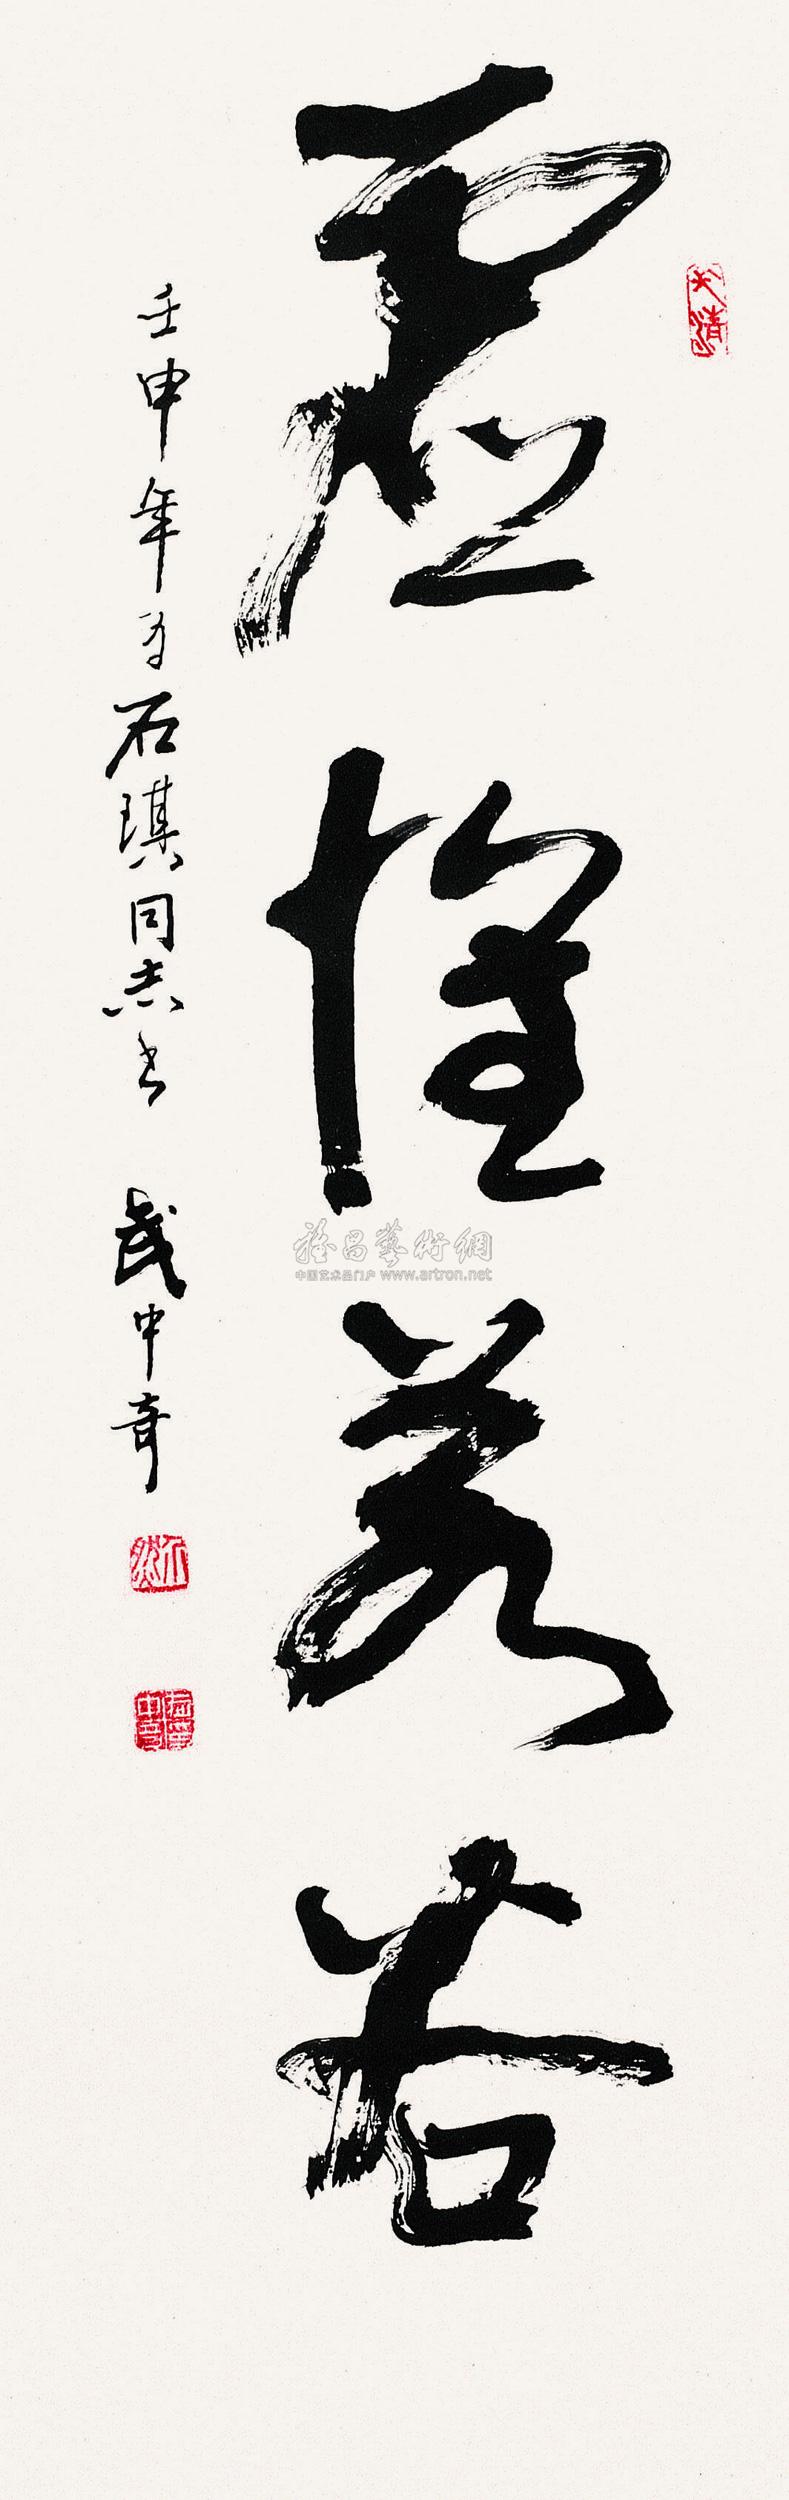 虚懷若谷
壬申年为石琪同志书 武中奇
雅昌藝術網
中国艺术品门户 www.artron.net